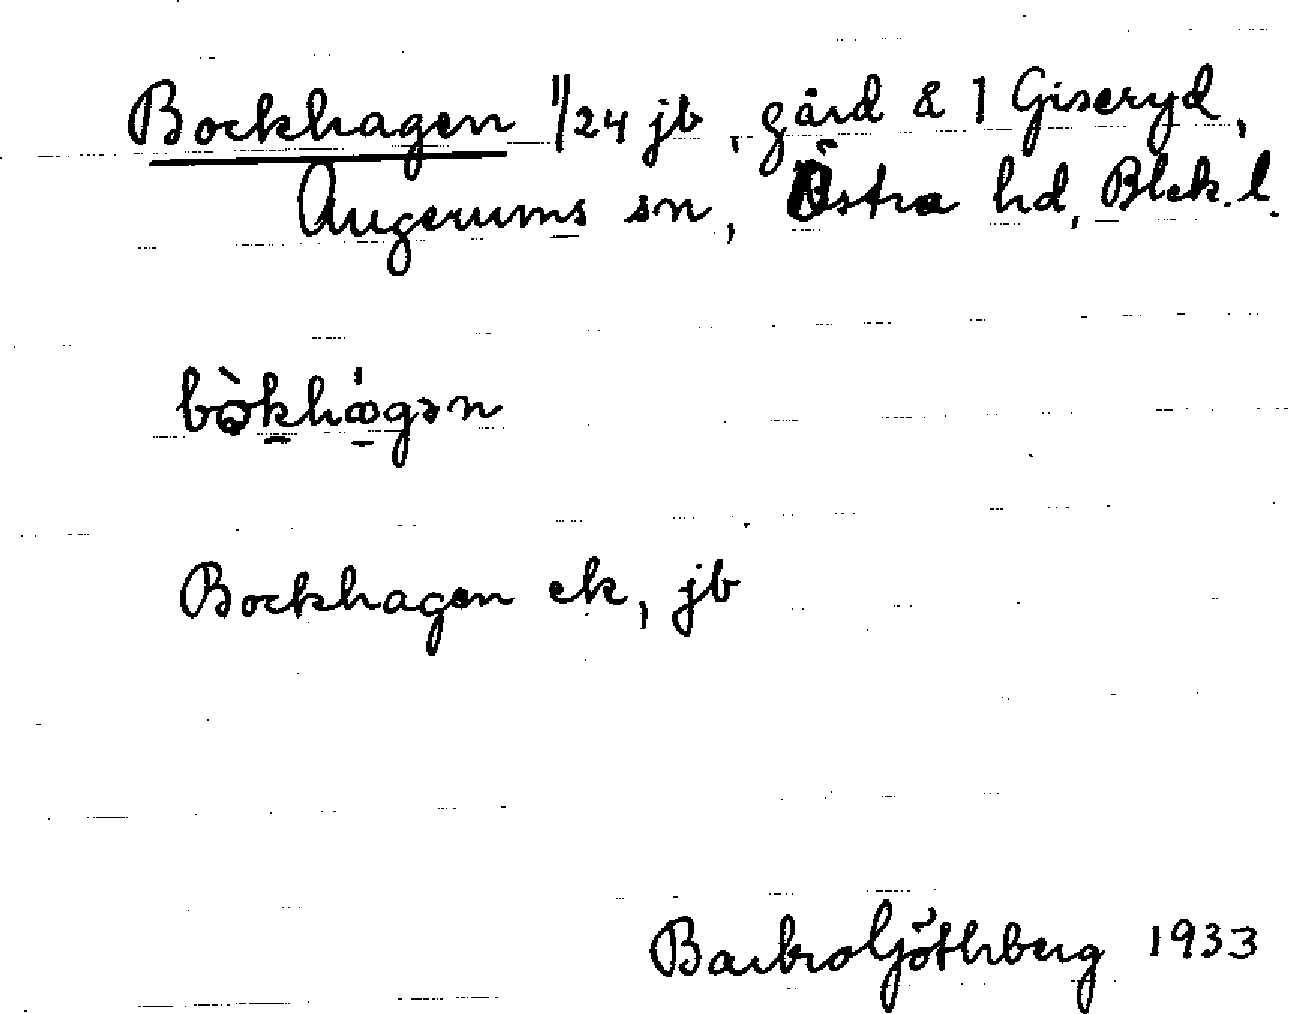 Bockhagen 1/24 jb, gård & 1 Giseryd,
Augerums sn, Östra hd, Blek. l.
bòkhágən
Bockhagen ek, jb
Barbro Göthberg 1933